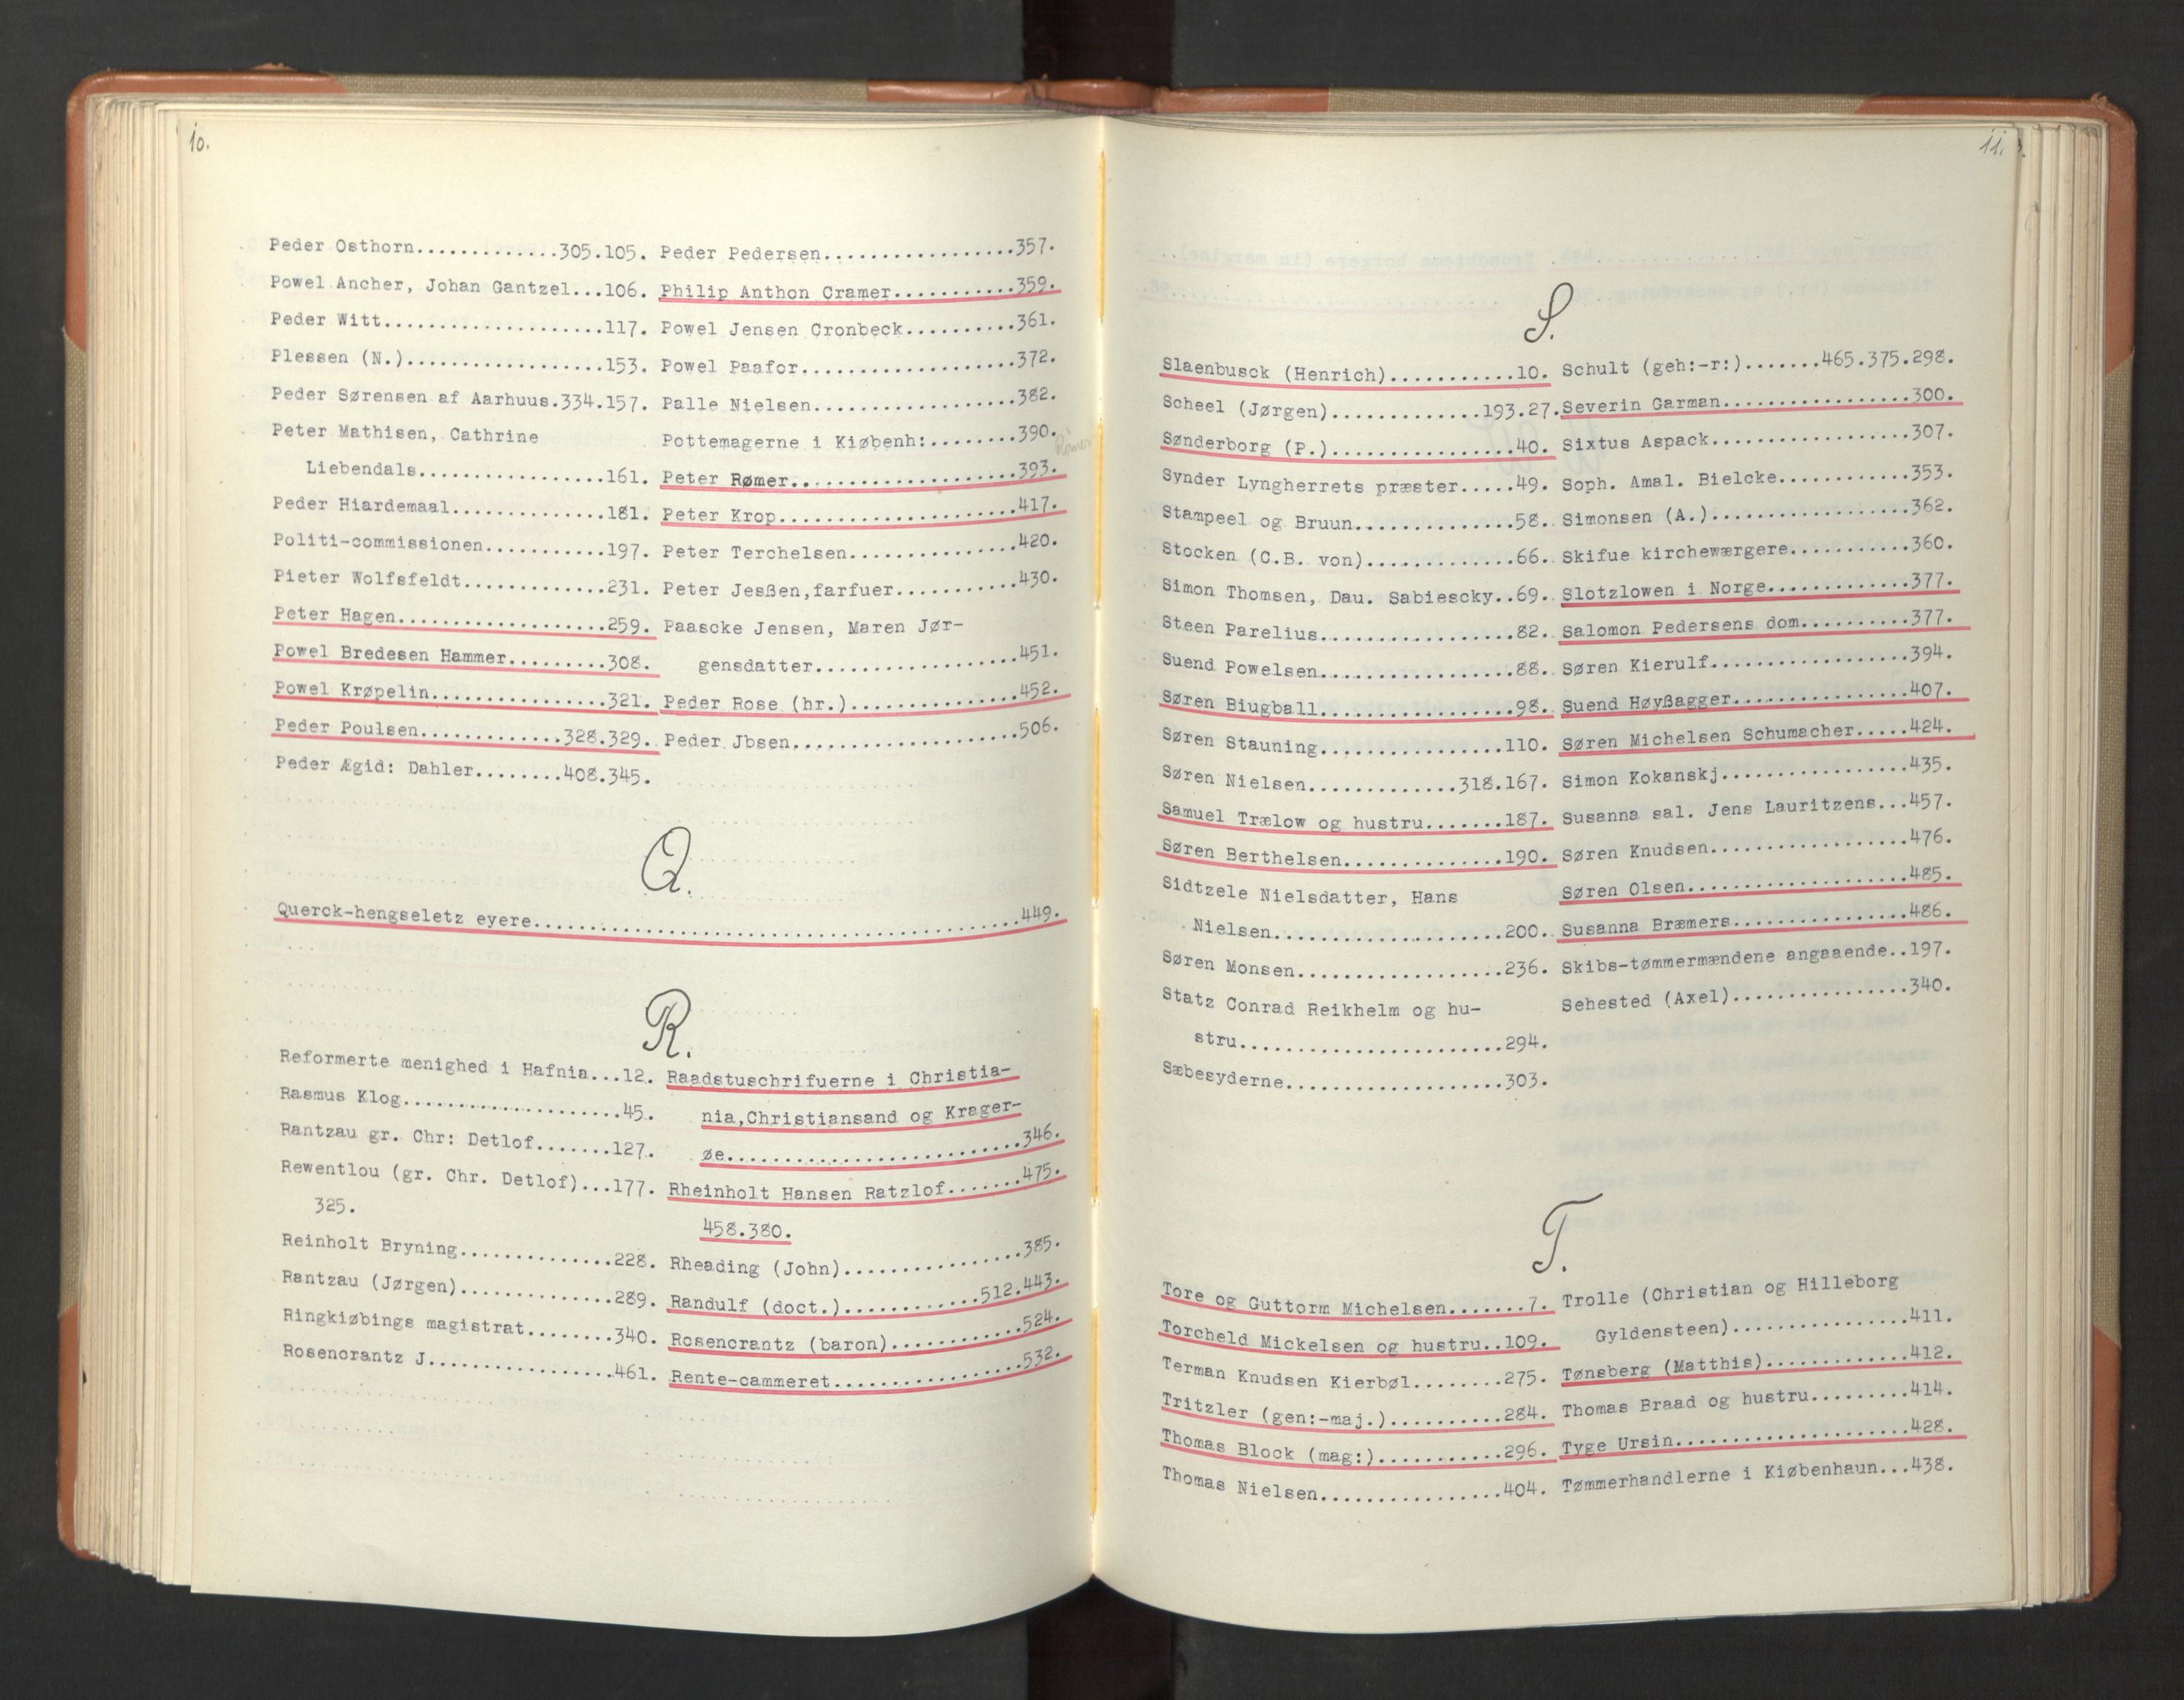 10.
Peder Osthorn.............305.105.
Powel Ancher, Johan Gantzel...106.
Peder Witt....................117.
Plessen (N.)..................153.
Peder Sørensen af Aarhuus.334.157.
Peter Mathisen, Cathrine
Liebendals.................161.
Peder Hiardemaal..............181.
Politi-commissionen...........197.
Pieter Wolfsfeldt.............231.
Peter Hagen...................259.
Powel Bredesen Hammer.........308.
Powel Krøpelin................321.
Peder Poulsen.............328.329.
Peder Ægid: Dahler........408.345.
Peder Pedersen..................357.
Philip Anthon Cramer...........359.
Powel Jensen Cronbeck..........361.
Powel Paafor....................372.
Palle Nielsen...................382.
Pottemagerne i Kiøbenh:........390.
Rømer
Peter Rømer.....................393.
Peter Krop......................417.
Peter Terchelsen...............420.
Peter Jesßen,farfuer...........430.
Paascke Jensen, Maren Jør-
gensdatter...................451.
Peder Rose (hr.)...............452.
Peder Jbsen.....................506.
Q.
Querck-hengseletz eyere.............................................449.
R.
Reformerte menighed i Hafnia...12.
Rasmus Klog....................45.
Rantzau gr. Chr: Detlof.......127.
Rewentlou (gr. Chr. Detlof)...177.
325.
Reinholt Bryning..............228.
Rantzau (Jørgen)..............289.
Ringkiøbings magistrat........340.
Rosencrantz J.................461.
Raadstuschrifuerne i Christia-
nia,Christiansand og Krager-
øe...........................346.
Rheinholt Hansen Ratzlof.......475.
458.380.
Rheading (John)................385.
Randulf (doct.)............512.443.
Rosencrantz (baron)............524.
Rente-cammeret.................532.
11.
S.
Slaenbusck (Henrich)...........10.
Scheel (Jørgen).............193.27.
Sønderborg (P.)................40.
Synder Lyngherrets præster.....49.
Stampeel og Bruun..............58.
Stocken (C.B. von).............66.
Simon Thomsen, Dau. Sabiescky..69.
Steen Parelius.................82.
Suend Powelsen.................88.
Søren Biugball.................98.
Søren Stauning................110.
Søren Nielsen.............318.167.
Samuel Trælow og hustru.......187.
Søren Berthelsen..............190.
Sidtzele Nielsdatter, Hans
Nielsen....................200.
Søren Monsen..................236.
Statz Conrad Reikhelm og hu-
stru.......................294.
Sæbesyderne...................303.
Schult (geh:-r:).......465.375.298.
Severin Garman.................300.
Sixtus Aspack..................307.
Soph. Amal. Bielcke............353.
Simonsen (A.)..................362.
Skifue kirchewærgere...........360.
Slotzlowen i Norge.............377.
Salomon Pedersens dom..........377.
Søren Kierulf..................394.
Suend Høyßagger................407.
Søren Michelsen Schumacher.....424.
Simon Kokanskj.................435.
Susanna sal. Jens Lauritzens...457.
Søren Knudsen..................476.
Søren Olsen....................485.
Susanna Bræmers................486.
Skibs-tømmermændene angaaende..197.
Sehested (Axel)................340.
T.
Tore og Guttorm Michelsen.......7.
Torcheld Mickelsen og hustru..109.
Terman Knudsen Kierbøl........275.
Tritzler (gen:-maj.)..........284.
Thomas Block (mag:)...........296.
Thomas Nielsen................404.
Trolle (Christian og Hilleborg
Gyldensteen)................411.
Tønsberg (Matthis).............412.
Thomas Braad og hustru.........414.
Tyge Ursin.....................428.
Tømmerhandlerne i Kiøbenhaun...438.